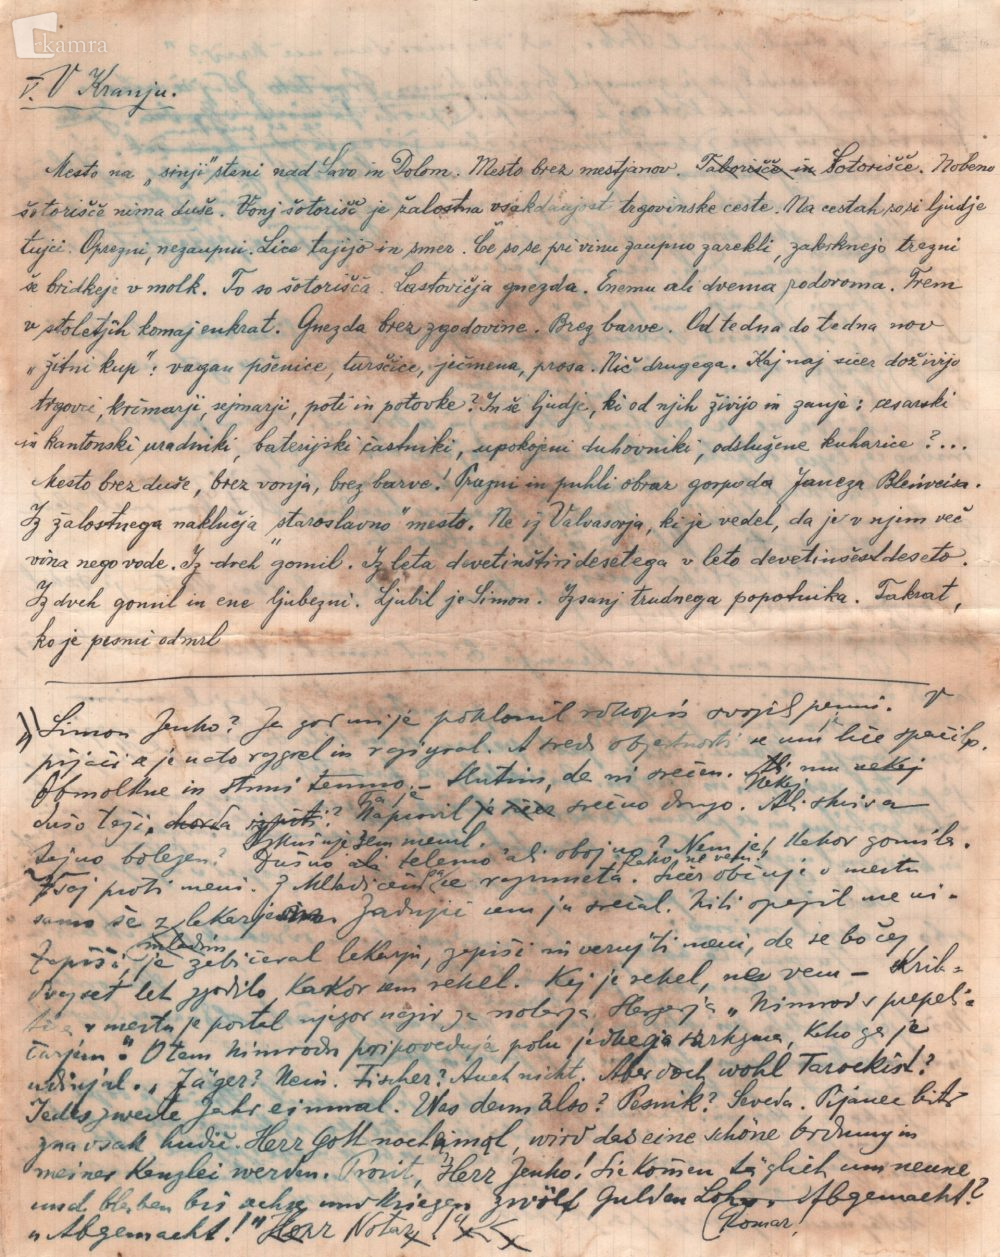 kamra
V. V Kranju.
Mesto na „sinji“ steni nad Savo in Dolom. Mesto brez mestjanov. Taborišče in Šotorišče. Nobeno
šotorišče nima duše. Vonj šotorišč je žalostna vsakdanjost trgovinske ceste. Na cestah so si ljudje
tujci. Oprezni, nezaupni. Lice tajijo in smer. Če so se pri vinu zaupno zarekli, zakrknejo trezni
še bridkeje v molk. To so šotorišča. Lastovičja gnezda. Enemu ali dvema rodovoma. Trem
v stoletjih komaj enkrat. Gnezda brez zgodovine. Brez barve. Od tedna do tedna nov
„žitni kup“: vagan pšenice, turščice, ječmena, prosa. Nič drugega. Kaj naj sicer doživijo
trgovci, krčmarji, sejmarji, poti in potovke? In še ljudje, ki od njih živijo in zanje: cesarski
in kantonski uradniki, baterijski častniki, upokojeni duhovniki, odslužene kuharice?...
Mesto brez duše, brez vonja, brez barve! Prazni in puhli obraz gospoda Janeza Bleiweisa.
Iz žalostnega naključja „staroslavno“ mesto. Ne iz Valvasorja, ki je vedel, da je v njem več
vina nego vode. Iz dveh gomil. Iz leta devetinštiridesetega v leto devetinšestdeseto.
Iz dveh gomil in ene ljubezni. Ljubil je Simon. Iz sanj trudnega popotnika. Takrat,
ko je pesmi odmrl
Simon Jenko? Je gori mi je poklonil rokopis svojih pesmi. V
pijači se je nato razgrel in razigral. A sredi objestnosti se mu lice spači.
Obmolkne in strmi temno. – Slutim, da ni srečen. Ali mu nekaj
dušo teži, Napravil je srečno drugo. Ali skriva
tajno bolezen? Dušno ali telesno ali obojno? Nem je kakor gomila.
Vsaj proti meni. Z Mladičem se razumeta. Sicer občuje v mestu
samo še z lekarjem. Zadnjič sem ju srečal. Nili opazil me ni-
Zapiši, je žebičeval mladim lekarju, zapiši in verujti meni, da se bo čez
dvajset let zgodilo, kakor sem rekel. Kaj je rekel, ne vem –
v mestu je postal njegov notarja „Nimrod
O tem Nimrodu pripoveduje kako ga je
udinjal. „Jäger? Nein. Fischer? Auch nicht. Aber doch wohl Tarockist?
Jedes zweite Jahr einmal. Was denn also? Pesnik? Seveda. Pijanec biti
zna vsak hudič. Herr Gott noch einmal, wird das eine schöne Ordnung in
meiner Kanzlei werden. Prosit, Herr Jenko! Sie kommen täglich um neune
und bleiben bis sechse und kriegen zwölf Gulden Lohn. Abgemacht?
„Abgemacht!“ Herr Notar!“